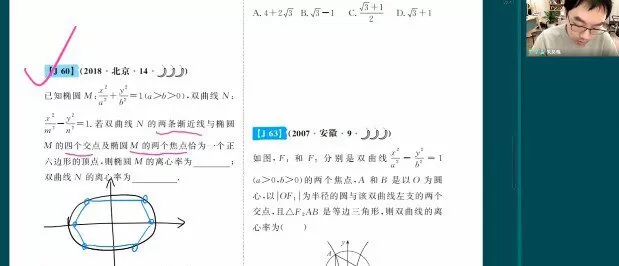 【J 60】(2018·北京·14·)
已知椭圆 M:x²/a²+y²/b²=1(a>b>0),双曲线 N:
x²/m²-y²/n²=1.若双曲线 N 的两条渐近线与椭圆
M 的四个交点及椭圆 M 的两个焦点恰为一个正
六边形的顶点,则椭圆 M 的离心率为________;
双曲线 N 的离心率为________.
A.4+2√3 B.√3-1 C.(√3+1)/2 D.√3+1
【J 63】(2007·安徽·9·)
如图,F₁ 和 F₂ 分别是双曲线 x²/a²-y²/b²=1
(a>0,b>0)的两个焦点,A 和 B 是以 O 为圆
心,以|OF₁|为半径的圆与该双曲线左支的两个
交点,且△F₂AB 是等边三角形,则双曲线的离
心率为( )
y
A